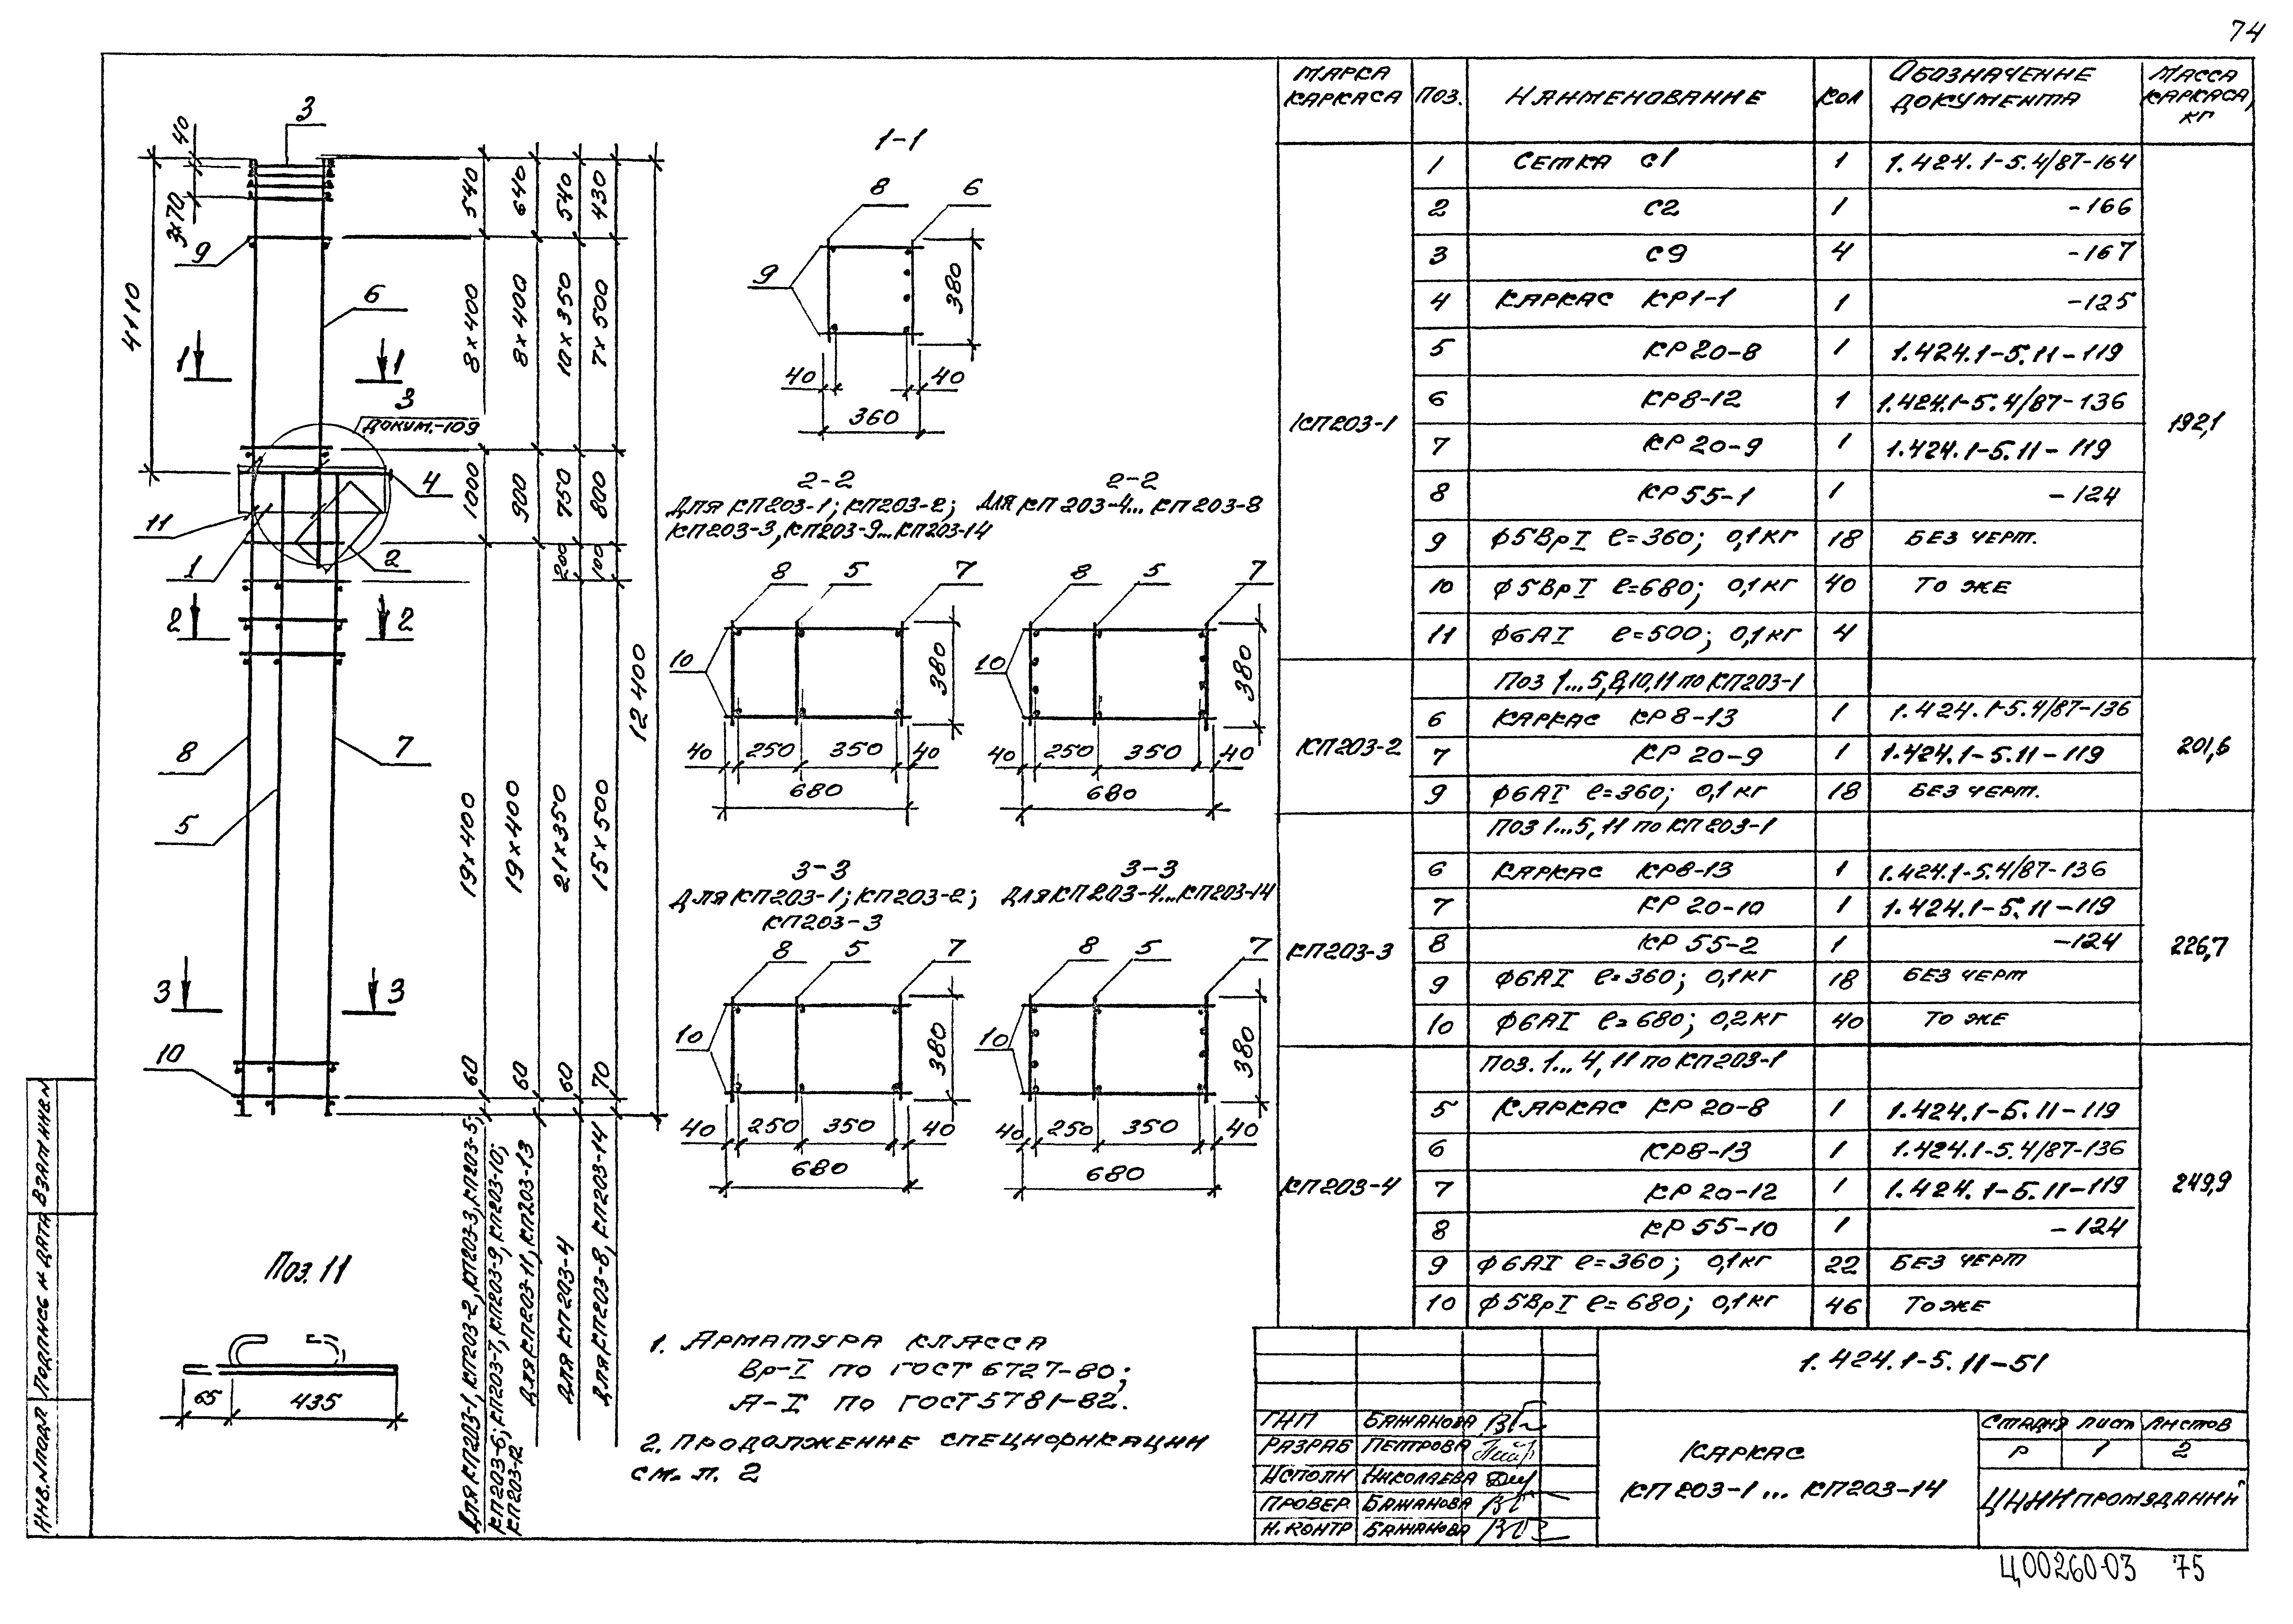 74
МАРКА КАРКАСА	ПОЗ.	НАИМЕНОВАНИЕ	КОЛ	ОБОЗНАЧЕНИЕ ДОКУМЕНТА	МАССА КАРКАСА, КГ
КП203-1	1	СЕТКА С1	1	1.424.1-5.4/87-164	192,1
2	С2	1	-166
3	С9	4	-167
4	КАРКАС КР1-1	1	-125
5	КР20-8	1	1.424.1-5.11-119
6	КР8-12	1	1.424.1-5.4/87-136
7	КР20-9	1	1.424.1-5.11-119
8	КР55-1	1	-124
9	ф5ВрI ℓ=360; 0,1кг	18	БЕЗ ЧЕРТ.
10	ф5ВрI ℓ=680; 0,1кг	40	ТО ЖЕ
11	ф6АI ℓ=500; 0,1кг	4
КП203-2	ПОЗ 1...5,8,10,11 по КП203-1	201,6
6	КАРКАС КР8-13	1	1.424.1-5.4/87-136
7	КР20-9	1	1.424.1-5.11-119
9	ф6АI ℓ=360; 0,1кг	18	БЕЗ ЧЕРТ.
КП203-3	ПОЗ 1...5,11 по КП203-1	226,7
6	КАРКАС КР8-13	1	1.424.1-5.4/87-136
7	КР20-10	1	1.424.1-5.11-119
8	КР55-2	1	-124
9	ф6АI ℓ=360; 0,1кг	18	БЕЗ ЧЕРТ
10	ф6АI ℓ=680; 0,2кг	40	ТО ЖЕ
КП203-4	ПОЗ. 1...4,11 по КП203-1	249,9
5	КАРКАС КР20-8	1	1.424.1-5.11-119
6	КР8-13	1	1.424.1-5.4/87-136
7	КР20-12	1	1.424.1-5.11-119
8	КР55-10	1	-124
9	ф6АI ℓ=360; 0,1кг	22	БЕЗ ЧЕРТ
10	ф5ВрI ℓ=680; 0,1кг	46	ТО ЖЕ
3
40
3х70
4110
9
6
1 1
3
ДОКУМ.-109
4
11
1
2
2 2
8
7
5
3 3
10
540 8х400 1000 19х400 60
640 8х400 900 19х400 60
540 10х350 750 200 21х350 60
430 7х500 800 100 15х500 70
12400
ДЛЯ КП203-1, КП203-2, КП203-3, КП203-5,
КП203-6; КП203-7, КП203-9, КП203-10;
КП203-12
ДЛЯ КП203-11, КП203-13
ДЛЯ КП203-4
ДЛЯ КП203-8, КП203-14
1-1
8 6
9
380
40 40
360
2-2
ДЛЯ КП203-1; КП203-2;
КП203-3, КП203-9...КП203-14
8 5 7
10
380
40 250 350 40
680
2-2
ДЛЯ КП203-4...КП203-8
8 5 7
10
380
40 250 350 40
680
3-3
ДЛЯ КП203-1; КП203-2;
КП203-3
8 5 7
10
380
40 250 350 40
680
3-3
ДЛЯ КП203-4...КП203-14
8 5 7
10
380
40 250 350 40
680
Поз. 11
65 435
1. АРМАТУРА КЛАССА
Вр-I по ГОСТ 6727-80;
А-I по ГОСТ 5781-82.
2. ПРОДОЛЖЕНИЕ СПЕЦИФИКАЦИИ
СМ. Л. 2
ИНВ.N ПОДЛ ПОДПИСЬ И ДАТА ВЗАМ ИНВ.N
1.424.1-5.11-51
ГИП БАЖАНОВА
РАЗРАБ ПЕТРОВА
ИСПОЛН НИКОЛАЕВА
ПРОВЕР. БАЖАНОВА
Н.КОНТР БАЖАНОВА
КАРКАС
КП203-1...КП203-14
СТАДИЯ ЛИСТ ЛИСТОВ
Р 1 2
ЦНИИПРОМЗДАНИЙ
Ц00260-03 75